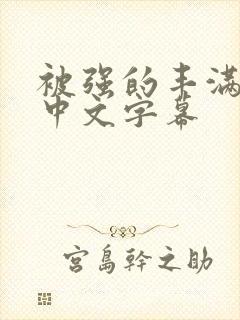 被强的丰满
中文字幕
宮島幹之助